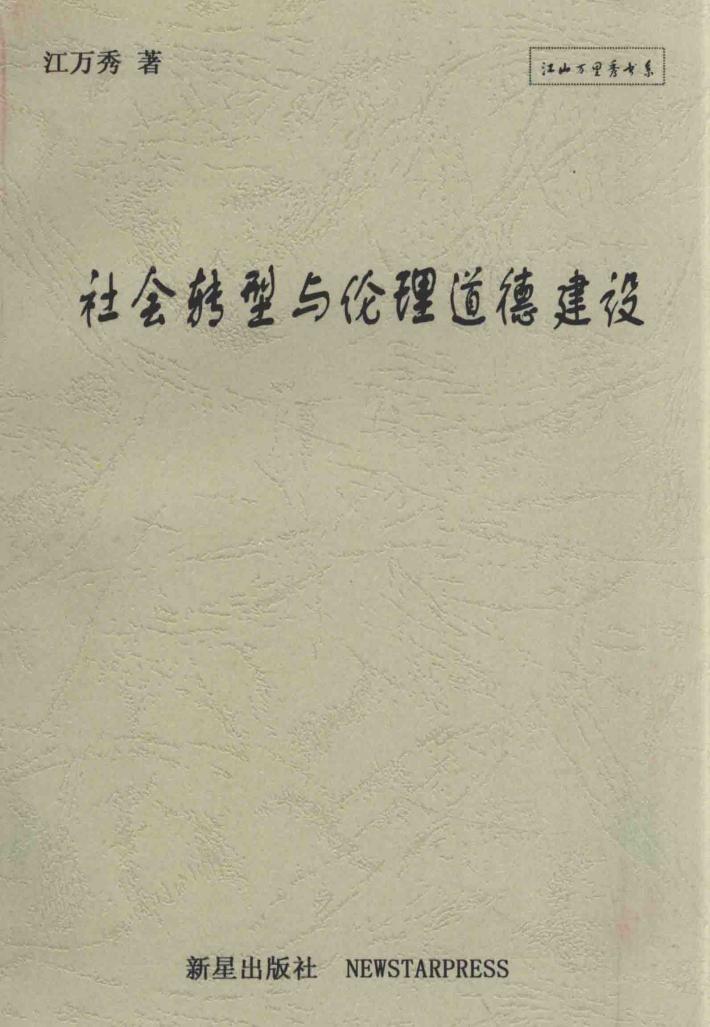 江万秀 著
江山万里秀书系
社会转型与伦理道德建设
新星出版社 NEWSTARPRESS